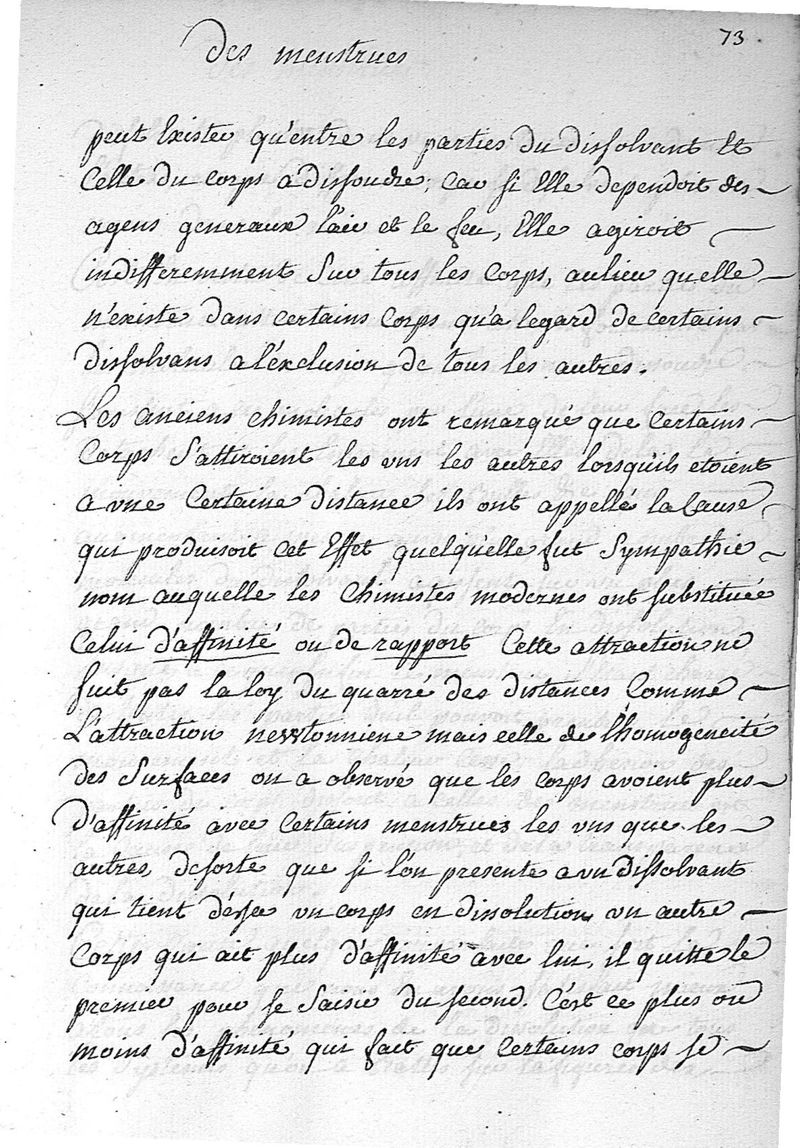 73
des menstrues
peut Exister qu'entre les parties du dissolvant Et
Celle du corps a dissoudre; car si Elle dependoit des
agens generaux l'air et le feu, Elle agiroit
indifferemment Sur tous les Corps, aulieu quelle
n'existe dans certains Corps qu'a legard de certains
dissolvans a l'éxclusion de tous les autres.
Les anciens chimistes ont remarqué que Certains
Corps S'attiroient les vns les autres lorsqu'ils etoient
a vne Certaine distance ils ont appellé la Cause
qui produisoit cet Effet quelqu'elle fut Sympathie
nom auquelle les Chimistes modernes ont substituée
Celui d'affinité ou de rapport Cette attraction ne
suit pas la loy du quarré des distances Comme
L'attraction newtonniene mais celle de l'homogeneité
des Surfaces on a observé que les corps avoient plus
d'affinité avec Certains menstrues les vns que les
autres, desorte que si l'on presente a vn Dissolvant
qui tient déja vn corps en dissolution vn autre
Corps qui ait plus d'affinité avec lui, il quitte le
premier pour se Saisir du second. C'est ce plus ou
moins d'affinité qui fait que Certains corps se